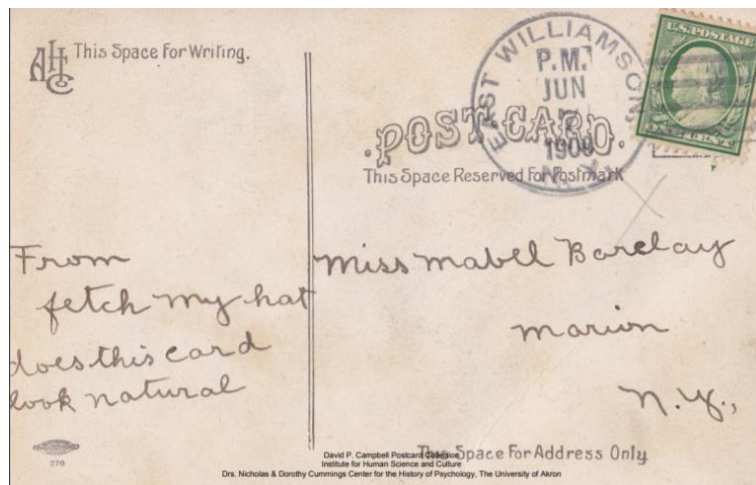 AHCo
This Space For Writing.
EAST WILLIAMSON,
P.M.
JUN
N.Y.
U.S. POSTAGE
ONE CENT
POST CARD.
This Space Reserved For Postmark
From
fetch my hat
does this card
look natural
Miss Mabel Barclay
Marion
N.Y.,
276
This Space For Address Only
David P. Campbell Postcard Collection
Institute for Human Science and Culture
Drs. Nicholas & Dorothy Cummings Center for the History of Psychology, The University of Akron